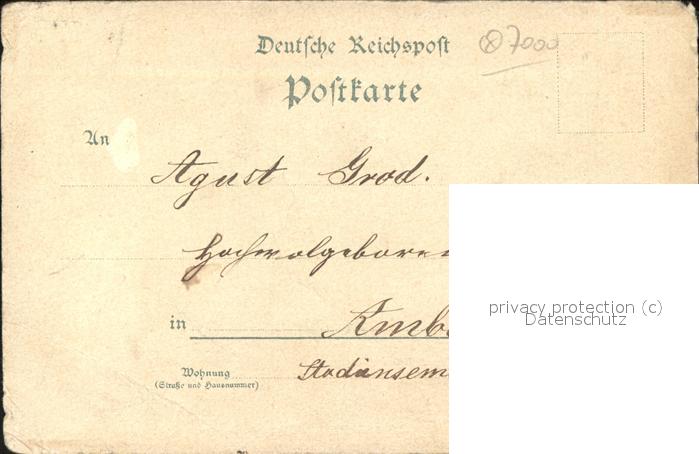 Deutsche Reichspost
7000
Postkarte
An
Agust Grod.
Hochwolgeboren
in
Wohnung
(Straße und Hausnummer)
privacy protection (c)
Datenschutz